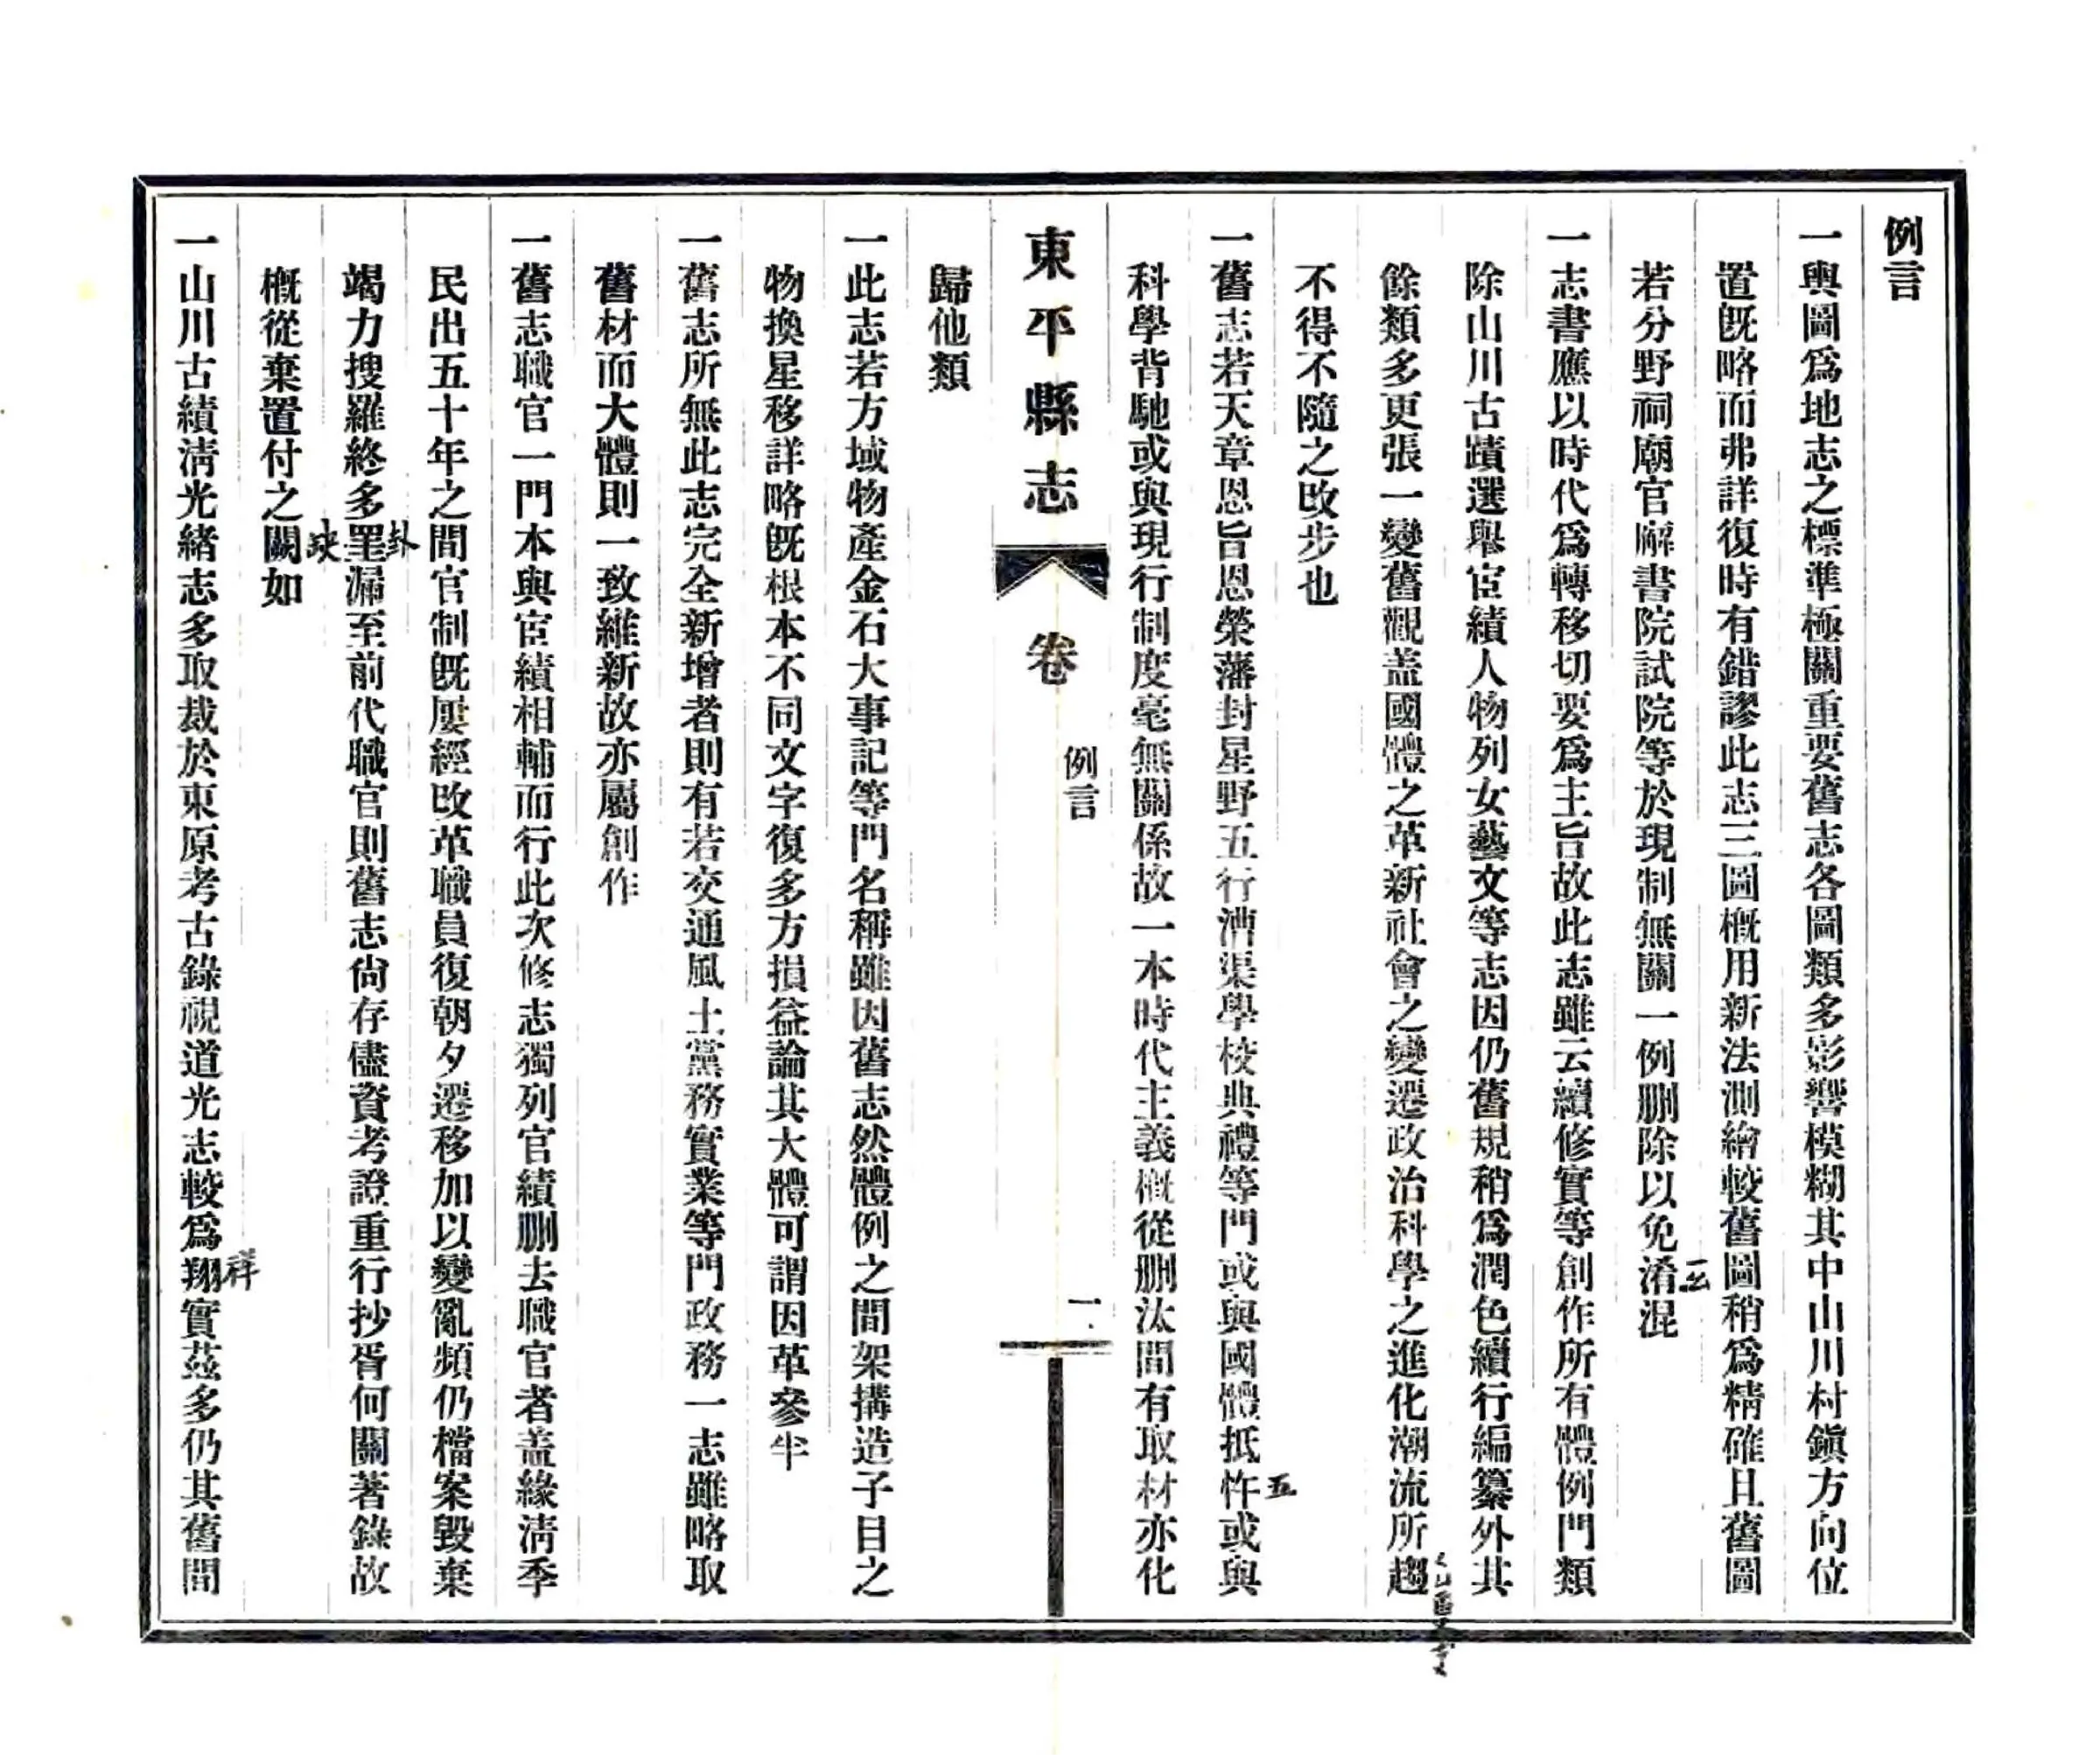 例言
一輿圖爲地志之標準極關重要舊志各圖類多影響模糊其中山川村鎭方向位
置旣略而弗詳復時有錯謬此志三圖槪用新法測繪較舊圖稍爲精確且舊圖
若分野祠廟官廨書院試院等於現制無關一例刪除以免淆混
一志書應以時代爲轉移切要爲主旨故此志雖云續修實等創作所有體例門類
除山川古蹟選舉宦績人物列女藝文等志因仍舊規稍爲潤色續行編纂外其
餘類多更張一變舊觀盖國體之革新社會之變遷政治科學之進化潮流所趨
不得不隨之改步也
一舊志若天章恩旨恩榮藩封星野五行漕渠學校典禮等門或與國體抵忤或與
五
科學背馳或與現行制度毫無關係故一本時代主義槪從刪汰間有取材亦化
東平縣志
卷
例言
一
歸他類
一此志若方域物產金石大事記等門名稱雖因舊志然體例之間架搆造子目之
物換星移詳略旣根本不同文字復多方損益論其大體可謂因革參半
一舊志所無此志完全新增者則有若交通風土黨務實業等門政務一志雖略取
舊材而大體則一致維新故亦屬創作
一舊志職官一門本與宦績相輔而行此次修志獨列官績刪去職官者盖緣淸季
民出五十年之間官制旣屢經改革職員復朝夕遷移加以變亂頻仍檔案毀棄
卦
竭力搜羅終多罣漏至前代職官則舊志尙存儘資考證重行抄胥何關著錄故
缺
槪從棄置付之闕如
祥
一山川古績淸光緒志多取裁於東原考古錄視道光志較爲翔實茲多仍其舊間